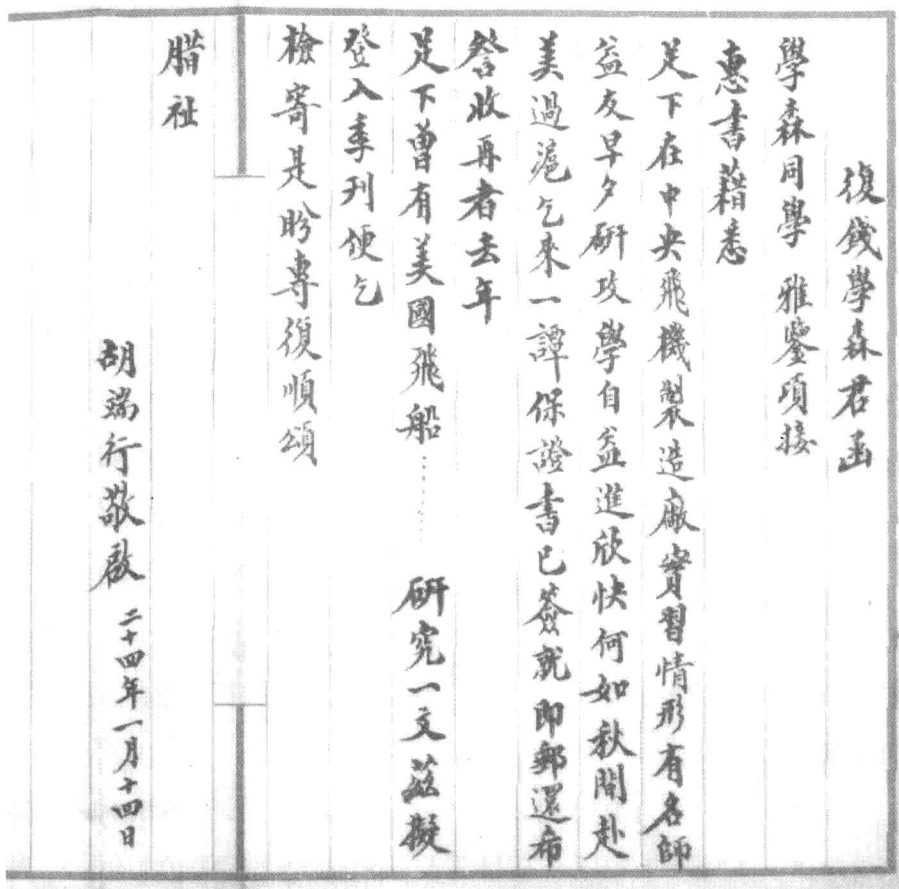 復錢學森君函
學森同學 雅鑒頃接
惠書藉悉
足下在中央飛機製造廠實習情形有名師
益友早夕研攻學自益進欣快何如秋間赴
美過滬乞來一譚保證書已簽就即郵還希
詧收再者去年
足下曾有美國飛船……研究一文茲擬
登入季刊便乞
檢寄是盼專復順頌
腊祉
胡端行敬啟 二十四年一月十四日